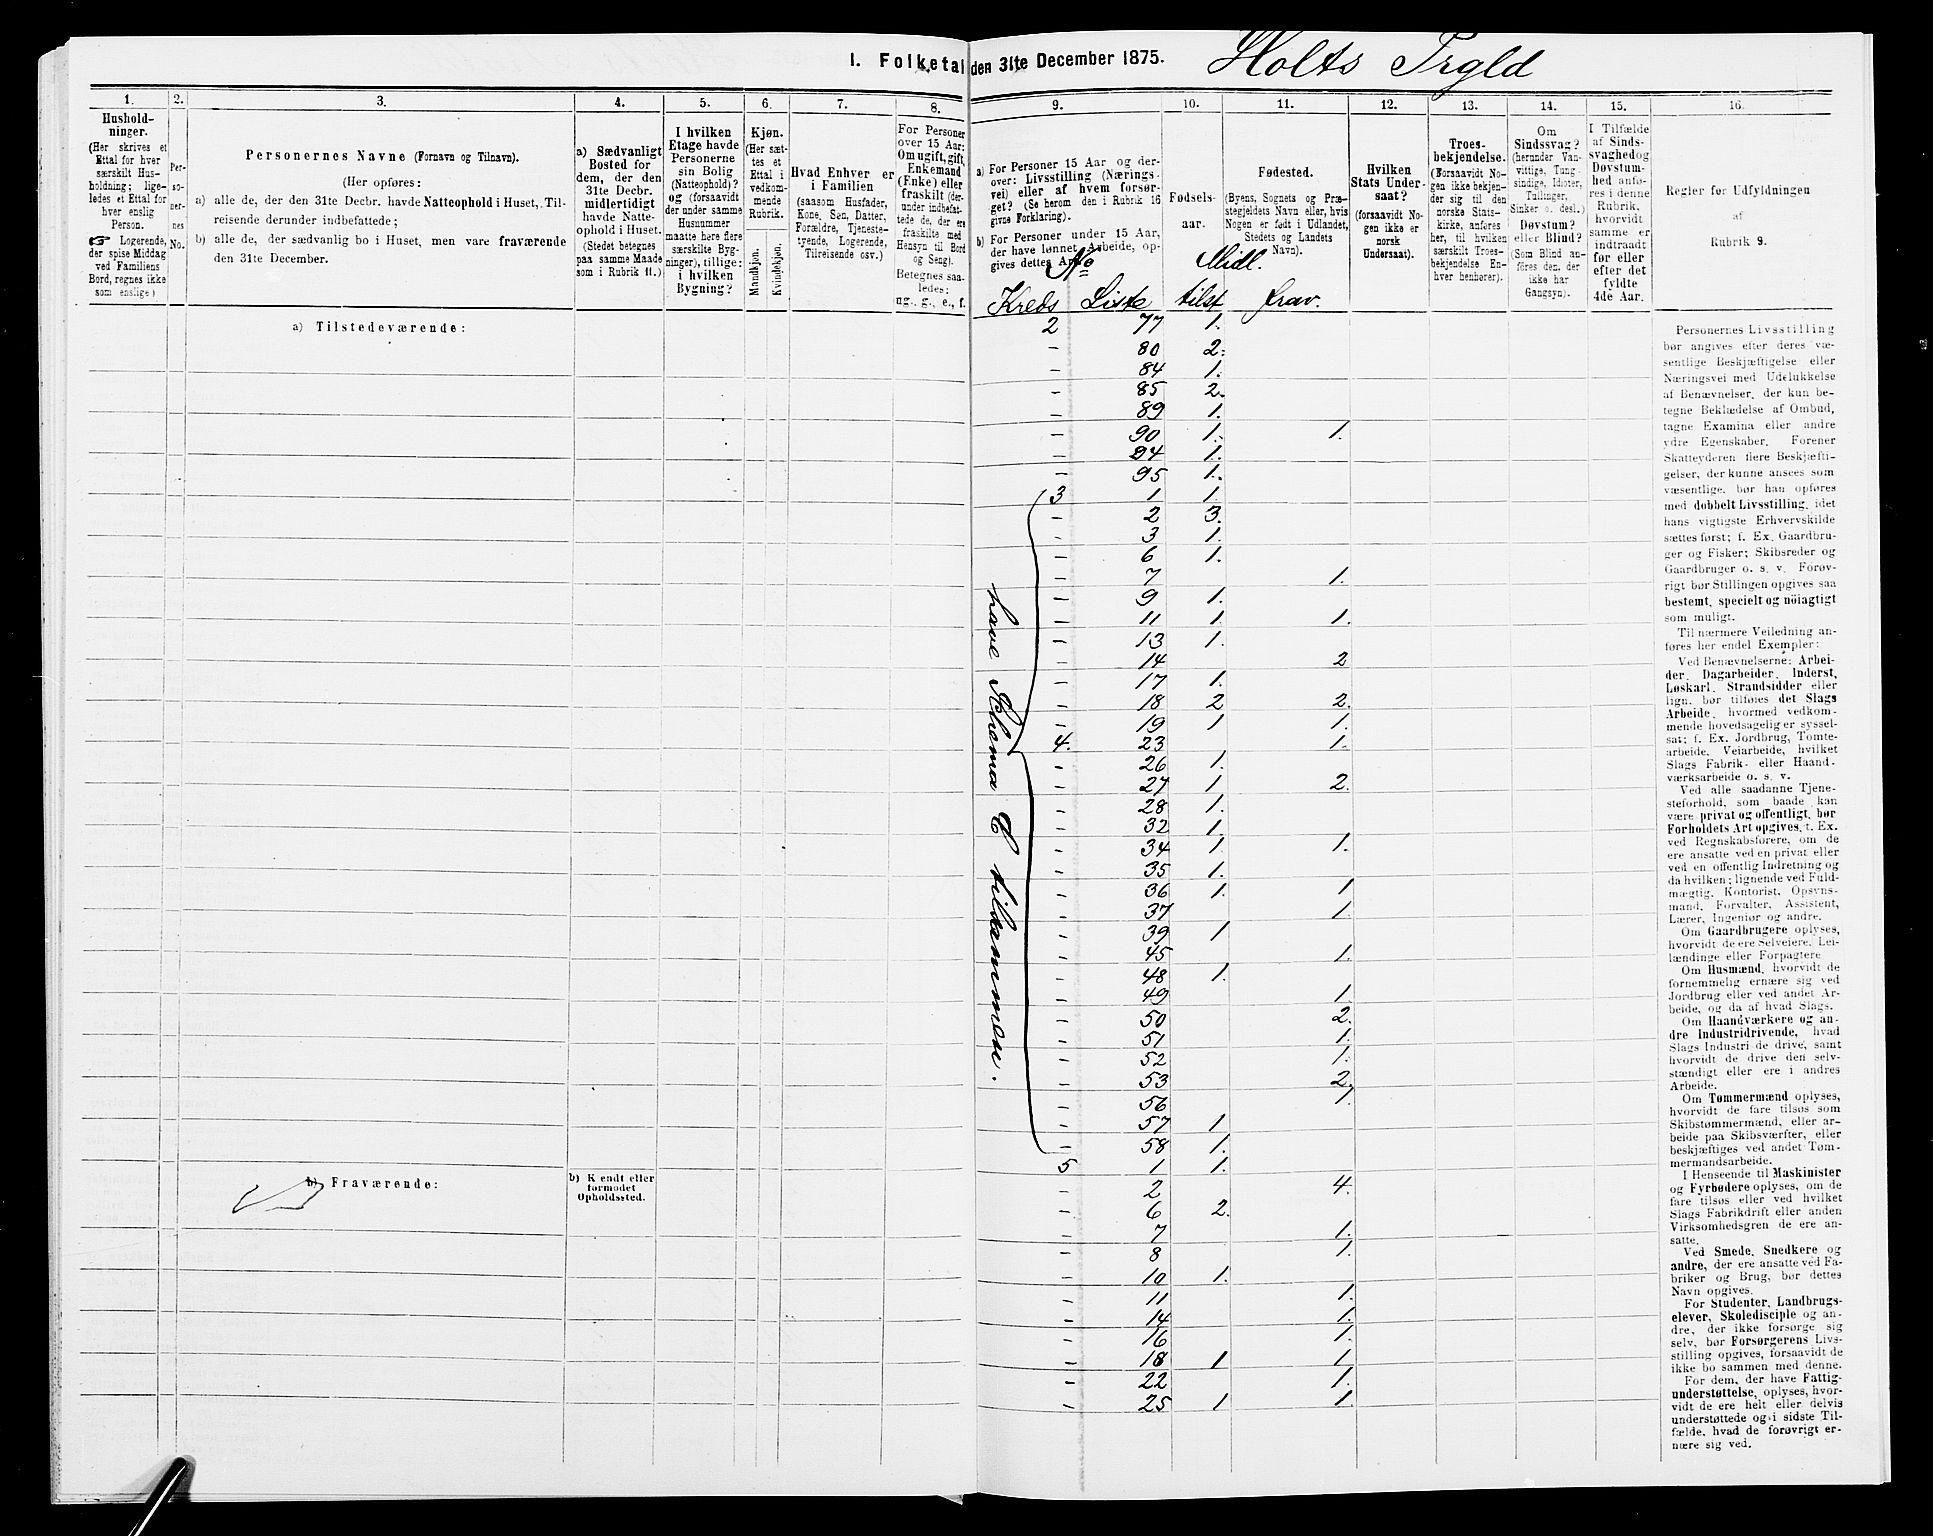 I. Folketal den 31te December 1875. Holts Prgld
1.
Hushold-
ninger.
(Her skrives et
Ettal for hver
særskilt Hus-
holdning; lige-
ledes et Ettal for
hver enslig
Person.
☞ Logerende,
der spise Middag
ved Familiens
Bord, regnes ikke
som enslige)
2.
Per-
so-
ner-
nes
No.
3.
Personernes Navne (Fornavn og Tilnavn).
(Her opføres:
a) alle de, der den 31te Decbr. havde Natteophold i Huset, Til-
reisende derunder indbefattede;
b) alle de, der sædvanlig bo i Huset, men vare fraværende
den 31te December.
4.
a) Sædvanligt
Bosted for
dem, der den
31te Decbr.
midlertidigt
havde Natte-
ophold i Huset.
(Stedet betegnes
paa samme Maade
som i Rubrik 11.)
5.
I hvilken
Etage havde
Personerne
sin Bolig
(Natteophold)?
og (forsaavidt
der under samme
Husnummer
maatte høre flere
særskilte Byg-
ninger), tillige:
i hvilken
Bygning?
6.
Kjøn.
(Her sæt-
tes et
Ettal i
vedkom-
mende
Rubrik.
Mandkjøn.
Kvindekjøn.
7.
Hvad Enhver er
i Familien
(saasom Husfader,
Kone, Søn, Datter,
Forældre, Tjeneste-
tyende, Logerende,
Tilreisende osv.)
8.
For Personer
over 15 Aar:
Om ugift, gift,
Enkemand
(Enke) eller
fraskilt (der-
under indbefat-
tede de, der ere
fraskilte med
Hensyn til Bord
og Seng).
Betegnes saa-
ledes:
ug., g., e., f.
9.
a) For Personer 15 Aar og der-
over: Livsstilling (Nærings-
vei) eller af hvem forsør-
get? (Se herom den i Rubrik 16
givne Forklaring).
b) For Personer under 15 Aar,
der have lønnet Arbeide, op-
gives dettes Art.
10.
Fødsels-
aar.
11.
Fødested.
(Byens, Sognets og Præ-
stegjeldets Navn eller, hvis
Nogen er født i Udlandet,
Stedets og Landets
Navn).
12.
Hvilken
Stats Under-
saat?
(forsaavidt No-
gen ikke er
norsk
Undersaat).
13.
Troes-
bekjendelse.
(Forsaavidt No-
gen ikke bekjen-
der sig til den
norske Stats-
kirke, anføres
her, til hvilken
særskilt Troes-
bekjendelse En-
hver henhører).
14.
Om
Sindssvag?
(herunder Van-
vittige, Tung-
sindige, Idioter,
Tullinger,
Sinker o. desl.)
Døvstum?
eller Blind?
(Som Blind an-
føres den, der
ikke har
Gangsyn).
15.
I Tilfælde
af Sinds-
svaghed og
Døvstum-
hed anfø-
res i denne
Rubrik,
hvorvidt
samme er
indtraadt
før eller
efter det
fyldte
4de Aar.
16.
Regler for Udfyldningen
af
Rubrik 9.
No Midl.
Kreds Liste tilst frav.
a) Tilstedeværende:
2 77 1.
- 80 2.
- 84 1.
- 85 2.
- 89 1.
- 90 1. 1.
- 94 1.
- 95 1.
3 1 1.
- 2 3.
- 3 1.
- 6 1.
- 7 1.
- 9 1.
- 11 1. 1.
- 13 1.
- 14 2
- 17 1.
- 18 2 2.
- 19 1 1.
4. 23 1.
- 26 1.
- 27 1 2.
- 28 1.
- 32 1.
- 34 1 1.
- 35 1.
- 36 1. 1
- 37 1.
- 39 1
- 45 1.
- 48 1.
- 49 1
- 50 2.
- 51 1.
- 52 1.
- 53 2.
- 56 1.
- 57 1
- 58 1.
5 1 1.
- 2 4.
- 6 2.
- 7 1.
- 8 1.
- 10 1.
- 11 1.
- 14 1.
- 16 1.
- 18 1 1
- 22 1.
- 25 1 1.
have Skema C tilsammen.
b) Fraværende:
b) Kjendt eller
formodet
Opholdssted.
Personernes Livsstilling
bør angives efter deres væ-
sentlige Beskjæftigelse eller
Næringsvei med Udelukkelse
af Benævnelser, der kun be-
tegne Beklædelse af Ombud,
tagne Examina eller andre
ydre Egenskaber. Forener
Skatteyderen flere Beskjæfti-
gelser, der kunne ansees som
væsentlige, bør han opføres
med dobbelt Livsstilling, idet
hans vigtigste Erhvervskilde
sættes først; f. Ex. Gaardbru-
ger og Fisker; Skibsreder og
Gaardbruger o. s. v. Forøv-
rigt bør Stillingen opgives saa
bestemt, specielt og nöiagtigt
som muligt.
Til nærmere Veiledning an-
føres her endel Exempler:
Ved Benævnelserne: Arbei-
der, Dagarbeider, Inderst,
Løskarl, Strandsidder eller
lign. bør tilføies det Slags
Arbeide, hvormed vedkom-
mende hovedsagelig er syssel-
sat; f. Ex. Jordbrug, Tomte-
arbeide, Veiarbeide, hvilket
Slags Fabrik- eller Haand-
værksarbeide o. s. v.
Ved alle saadanne Tjene-
steforhold, som baade kan
være privat og offentligt, bør
Forholdets Art opgives, t. Ex.
ved Regnskabsførere, om de
ere ansatte ved en privat eller
ved en offentlig Indretning og
da hvilken; lignende ved Fuld-
mægtig, Kontorist, Opsyns-
mand, Forvalter, Assistent,
Lærer, Ingeniør og andre.
Om Gaardbrugere oplyses,
hvorvidt de ere Selveiere, Lei-
lændinge eller Forpagtere
Om Husmænd, hvorvidt de
fornemmelig ernære sig ved
Jordbrug eller ved andet Ar-
beide, og da af hvad Slags.
Om Haandværkere og an-
dre Industridrivende, hvad
Slags Industri de drive, samt
hvorvidt de drive den selv-
stændigt eller ere i andres
Arbeide.
Om Tømmermænd oplyses,
hvorvidt de fare tilsøs som
Skibstømmermænd, eller ar-
beide paa Skibsværfter, eller
beskjæftiges ved andet Tøm-
mermandsarbeide.
I Henseende til Maskinister
og Fyrbødere oplyses, om de
fare tilsøs eller ved hvilket
Slags Fabrikdrift eller anden
Virksomhedsgren de ere an-
satte.
Ved Smede, Snedkere og
andre, der ere ansatte ved Fa-
briker og Brug, bør dettes
Navn opgives.
For Studenter, Landbrugs-
elever, Skoledisciple og an-
dre, der ikke forsørge sig
selv, bør Forsørgerens Livs-
stilling opgives, forsaavidt de
ikke bo sammen med denne.
For dem, der have Fattig-
understøttelse, oplyses, hvor-
vidt de ere helt eller delvis
understøttede og i sidste Til-
fælde, hvad de forøvrigt er-
nære sig ved.